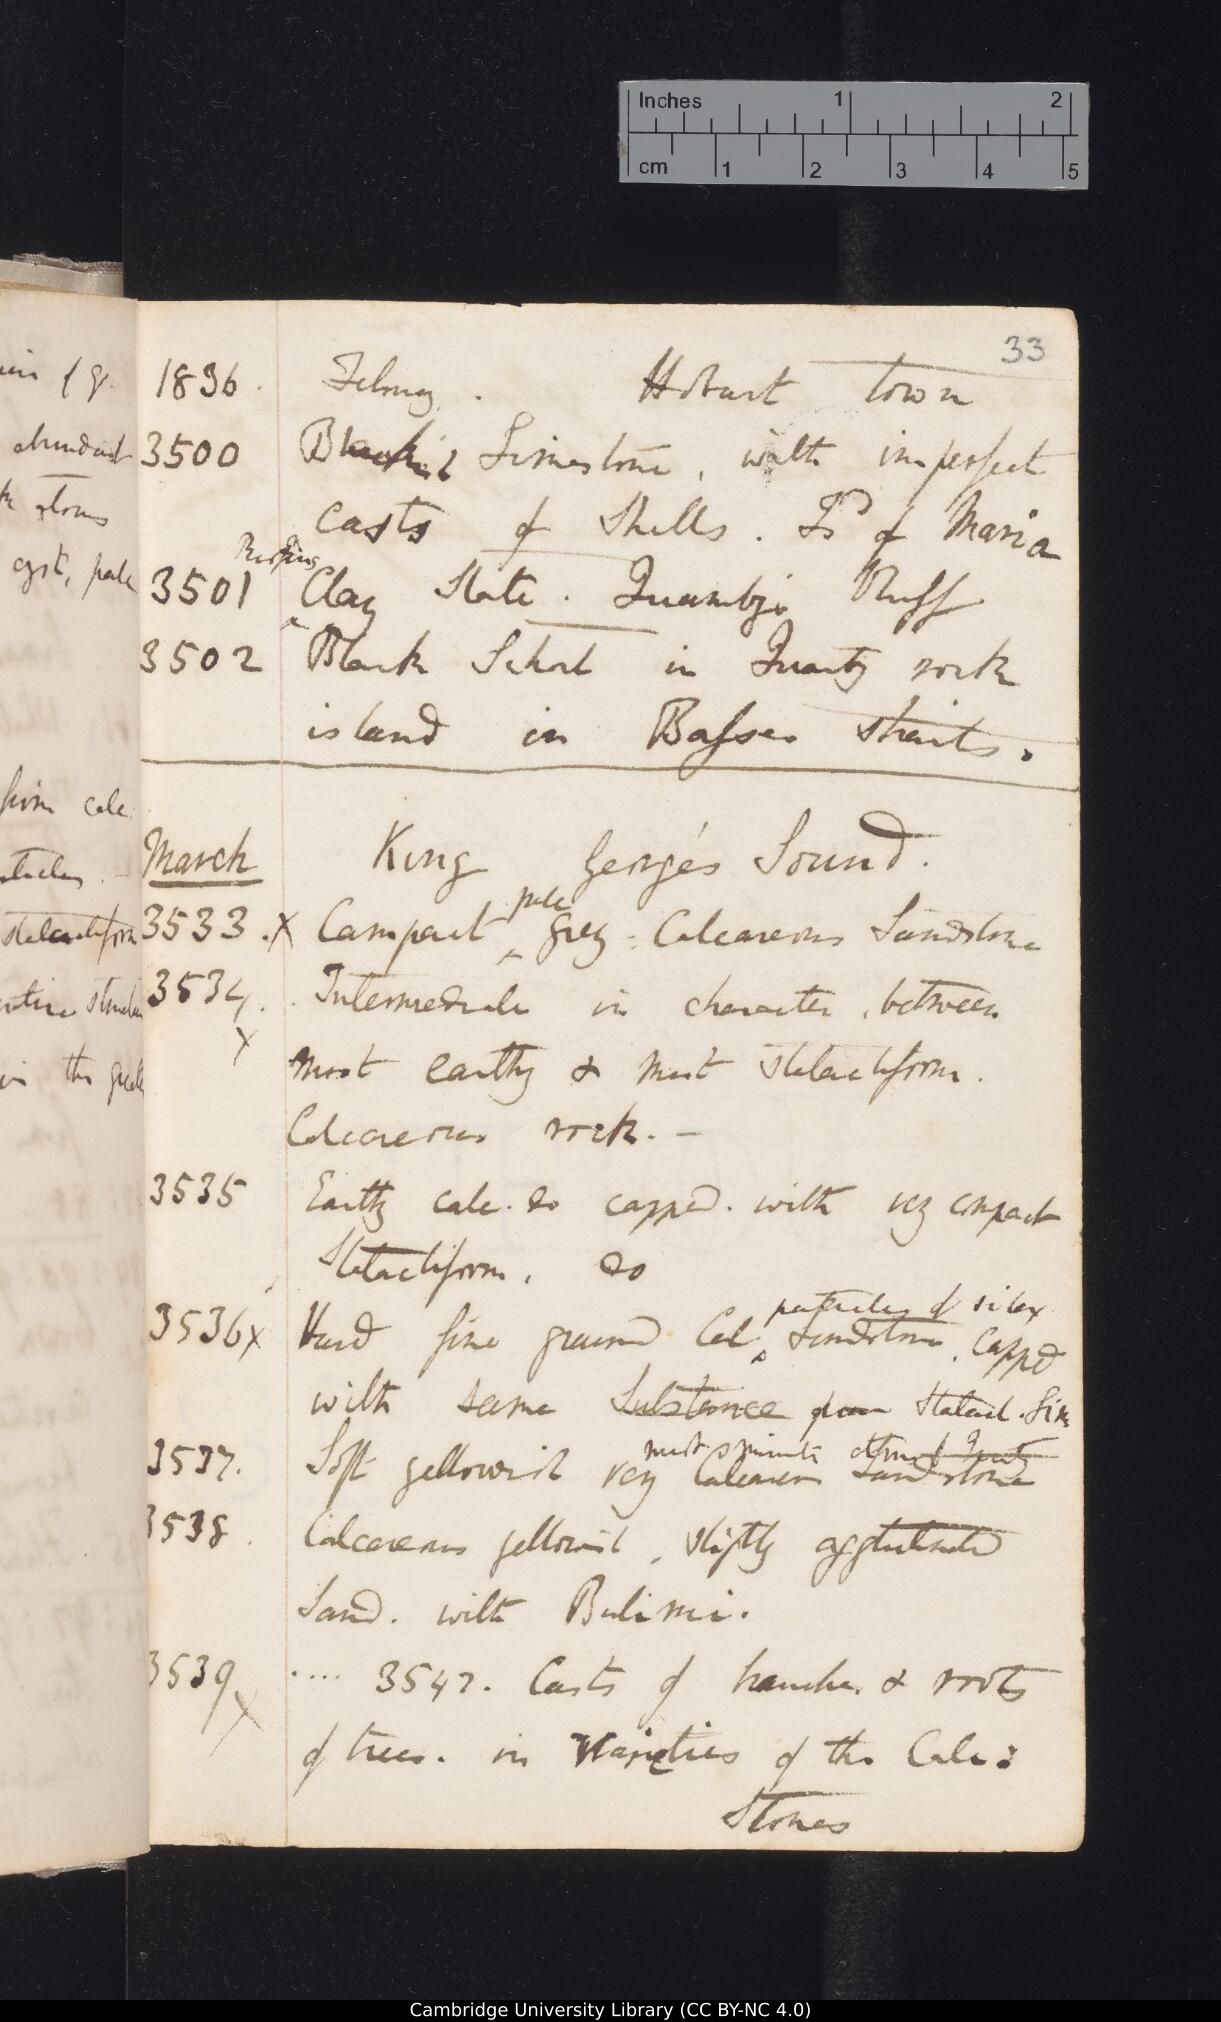 Inches 1 2
cm 1 2 3 4 5
33
1836. February. Hobart town
3500 Blackish Limestone, with imperfect
casts of Shells. Isd of Maria
Purplish
3501 Clay Slate. Quamby's Bluff
3502 Black Schorl in Quartz rock
island in Basses Straits.
March King George's Sound.
pale
3533 .X Compact ^ grey: Calcareous Sandstone
3534. Intermediate in character, between
X
most earthy & most stalactiform.
Calcareous rock. —
3535 Earthy calc. do capped. with very compact
Stalactiform. do
particles of silex
3536X Hard fine grained Cal: ^ Sandstone. Capped
with same Substance Stalact. Sim
most minute atoms of Quartz
3537. Soft yellowish very Calcareous Sandstone
3538. Calcareous yellowish, slightly agglutinated
Sand. with Bulimi.
3539 .... 3542. Casts of branches & roots
X
of trees. in Varieties of the Calc:
Stones
of
abundant
atoms
pale
from calc:
stalactiform
in the
Cambridge University Library (CC BY-NC 4.0)